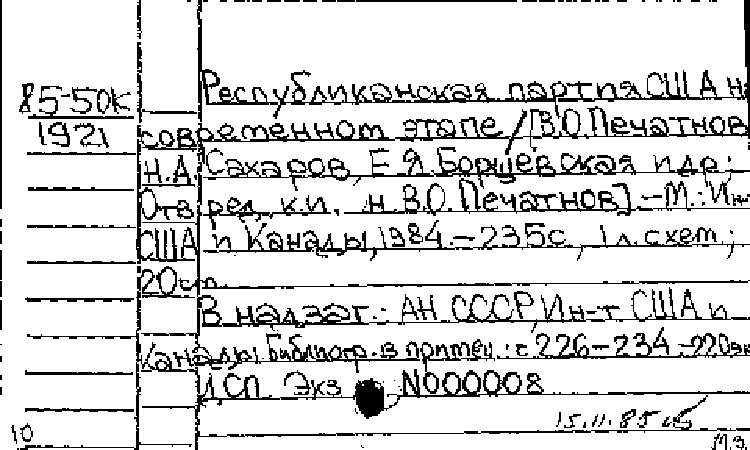 85-50к Республиканская партия США на
1921 современном этапе / [В.О. Печатнов,
Н.А. Сахаров, Е.Я. Борщевская и др.;
Отв. ред. к.и.н. В.О. Печатнов]. - М.: Ин-
США и Канады, 1984. - 235с, 1 л. схем;
20см.
В надзаг.: АН СССР, Ин-т США и
Канады. Библиогр. в примеч.: с 226-234. - 220экз
ДСП Экз N000008
15.11.85
10
М.З.